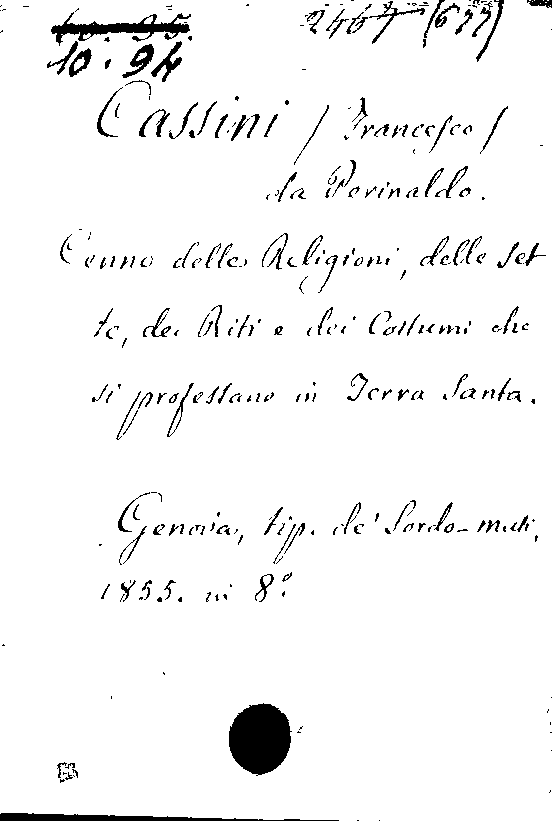 10. 35. 2467 (677)
10. 94
Cassini / Francesco /
da Perinaldo.
Cenno delle Religioni, delle Set
te, dei Riti e dei Costumi che
si professano in Terra Santa.
Genova, tip. de' Sordo-muti,
1855. in 8º